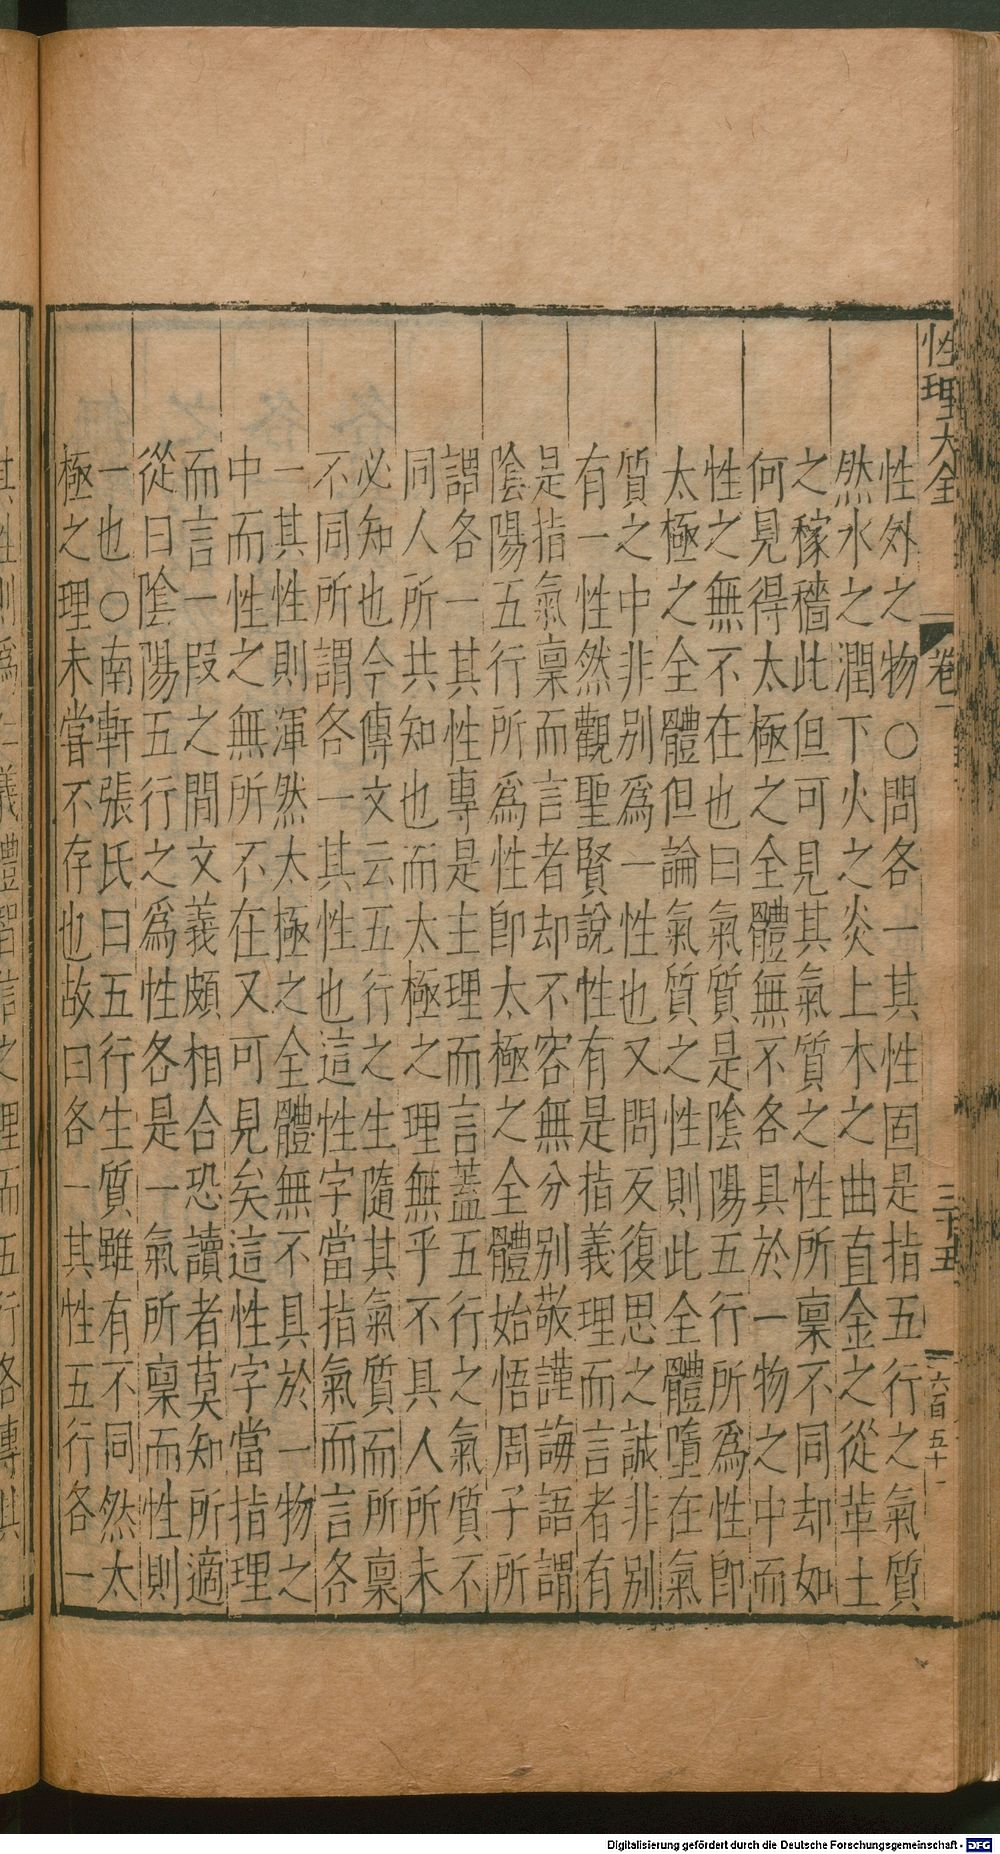 性理大全
卷一
三十五
六百五十一
性外之物○問各一其性固是指五行之氣質
然水之潤下火之炎上木之曲直金之從革土
之稼穡此但可見其氣質之性所稟不同却如
何見得太極之全體無不各具於一物之中而
性之無不在也曰氣質是陰陽五行所爲性卽
太極之全體但論氣質之性則此全體墮在氣
質之中非別爲一性也又問反復思之誠非別
有一性然觀聖賢說性有是指義理而言者有
是指氣稟而言者却不容無分別敬謹誨語謂
陰陽五行所爲性卽太極之全體始悟周子所
謂各一其性專是主理而言蓋五行之氣質不
同人所共知也而太極之理無乎不具人所未
必知也今傳文云五行之生隨其氣質而所稟
不同所謂各一其性也這性字當指氣而言各
一其性則渾然太極之全體無不具於一物之
中而性之無所不在又可見矣這性字當指理
而言一段之閒文義頗相合恐讀者莫知所適
從曰陰陽五行之爲性各是一氣所稟而性則
一也○南軒張氏曰五行生質雖有不同然太
極之理未嘗不存也故曰各一其性五行各一
其性則爲仁義禮智信之理而五行各專其
Digitalisierung gefördert durch die Deutsche Forschungsgemeinschaft - DFG